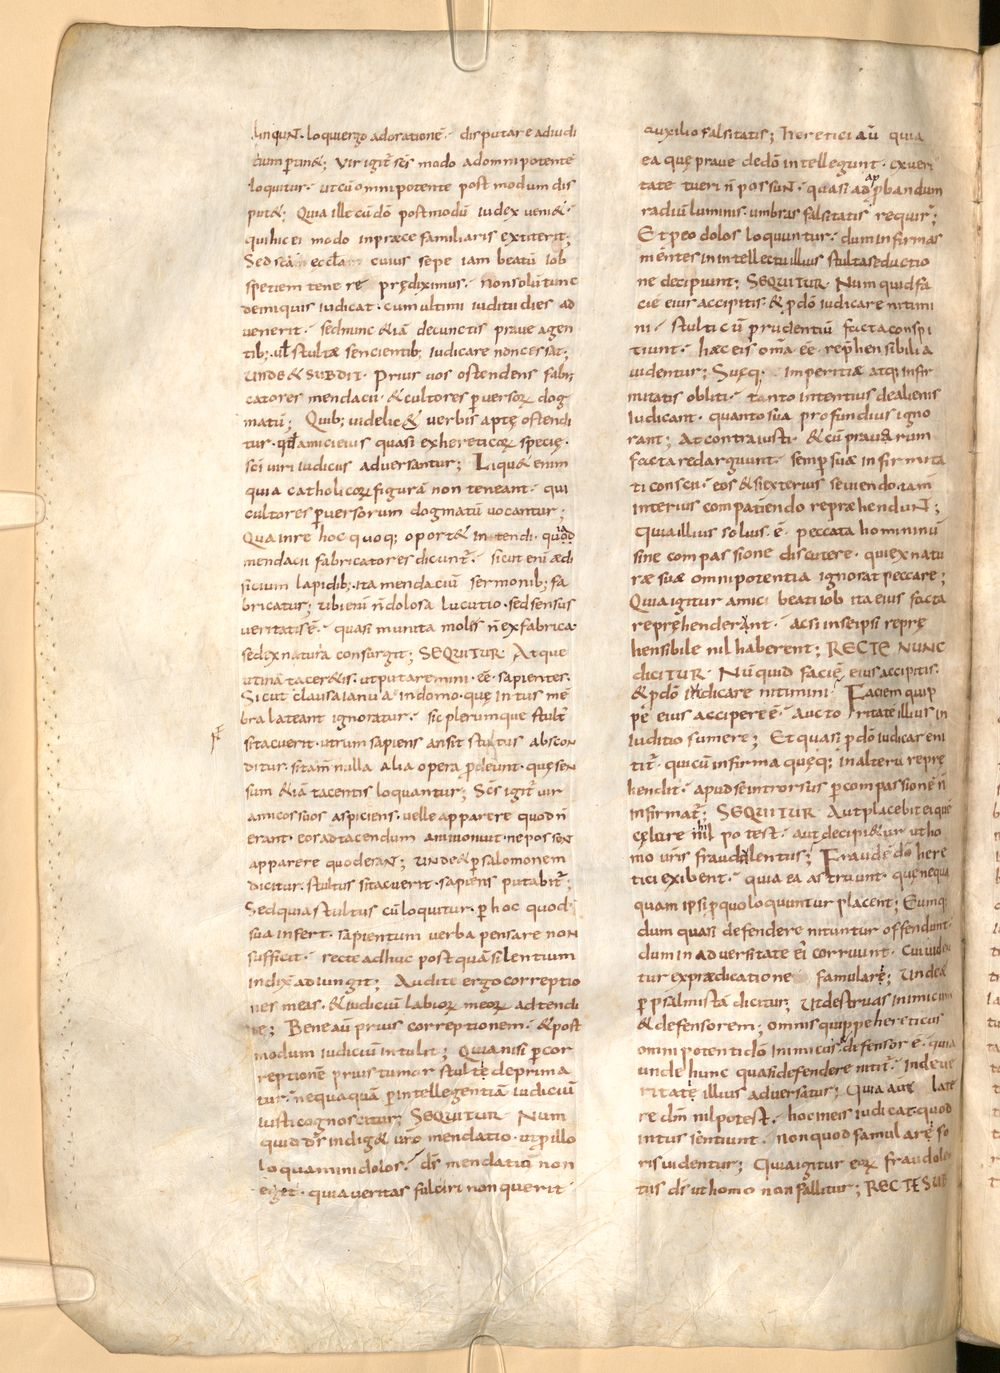 linquNt. loqui ergo ad oratione. disputare ad iudi
cium ptin&; Vir igit scs modo ad omnipotente
loquitur. ut cū omnipotente post modum dis
put&; Quia ille cū dō postmodū iudex veni&.
qui hic ei modo in præce familiaris extiterit;
Sed scām ecclam cuius sepe iam beatū iob
speciem tenere prędiximus. non solū tunc
demū quis iudicat. cum ultimi iuditii dies ad
venerit. sed nunc &iā de cunctis prave agen
tib; ul stultæ sencientib; iudicare non cessat;
UNDE & SUBDIT. Prius vos ostendens fabri
catores mendacii. & cultores pversoꝝ dog
matū; Quib; videlic& verbis aptę ostendi
tur. qđ amici eius quasi ex hereticoꝝ specię.
sci viri iudiciis adversantur; Liqu& enim
quia catholicoꝝ figurā non teneant. qui
cultores pversorum dogmatū vocantur;
Qua in re hoc quoq; oport& intendi. quod
mendacii fabricatores dicunt. sicut eni ædi
ficium lapidib; ita mendaciū sermonib; fa
bricatur; ubi eni n̄ dolosa lucutio. sed sensus
veritatis ē. quasi munita molis n̄ ex fabrica
sed ex natura consurgit; SEQUITUR Atque
utinā tacer&is. ut putaremini. eē. sapientes.
Sicut clausa ianua in domo. quę intus mē
bra lateant ignoratur. sic plerumque stult
si tacuerit. utrum sapiens an sit stultus abscon
ditur. si tam nulla alia opera pdeunt. quę sen
sum &iā tacentis loquantur; Scs igit vir
amicos suos aspiciens. velle apparere quod n̄
erant. eos ad tacendum ammonuit. ne possen
apparere quod eraNt; UNDE & p salomonem
dicitur. stultus si tacuerit. sapiens putabit;
Sed quia stultus cū loquitur. p hoc quod
sua infert. sapientum verba pensare non
sufficit. recte adhuc post quā silentium
indix& adiungit; Audite ergo correptio
nes meas. & iudiciū labioꝝ meoꝝ adtendi
te; Bene aū prius correptionem. & post
modum iudiciū intulit; Quia nisi p cor
reptionē prius tumor stulte deprima
tur. nequaquā p intellegentiā iudiciū
iusti cognoscitur; SEQUITUR Num
quid dš indig& vr̄o mendatio. ut p illo
loquamini dolos. dš mendatiū non
eg&. quia veritas fulciri non querit
auxilio falsitatis; heretici aū quia
ea quę prave de dō intellegunt. ex veri
tate tueri n̄ possuNt. quasi ad apbandum
radiū luminis. umbras falsitatis requir;
Et p eo dolos loquuntur. dum infirmas
mentes in intellectu illius stulta seductio
ne decipiunt; SEQUITUR Num quid fa
ciē eius accipitis. & p dō iudicare nitimi
ni. stulti cū prudentiū facta conspi
tiunt. hæc eis om̄a eē. rephensibilia
videntur; Suęq. imperitiæ atq; infir
mitatis obliti. tanto intentius de alienis
iudicant. quanto sua profundius igno
rant; At contra iusti. & cū pravorum
facta redarguunt. semp suæ infirmita
ti conscii. eos & si exterius seviendo. tam
interius compatiendo repræhenduNt;
Quia illius solius. ē. peccata hominum
sine compassione discutere. qui ex natu
ræ suæ omnipotentia ignorat peccare;
Quia igitur amici beati iob ita eius facta
repręhenderant. ac si in se ipsi repre
hensibile nil haberent; RECTE NUNC
DICITUR. Nū quid faciē eius accipitis.
& p dō iudicare nitimini. Faciem quip
pe eius accipere ē. auctoritate illius in
iuditio sumere; Et quasi p dō iudicare ni
tit. qui cū infirma quęq; in alteru repre
hendit. apud se introrsus p compassionē n̄
infirmat; SEQUITUR Aut placebit ei quē
cęlare nihil potest. aut decipi&ur ut ho
mo vr̄is fraudulentus; Fraudē dō here
tici exibent. quia ea astruunt. quę nequa
quam ipsi p quo loquuntur placent; Eumq
dum quasi defendere nituntur offendunt.
dum in adversitate ei corruunt. cui viden
tur ex prædicatione famulare; Unde &
p psalmistā dicitur; Ut destruas inimicum
& defensorem; omnis quippe hereticus
omnipotenti dō inimicus & defensor ē. quia
unde hunc quasi defendere nitit. inde ve
ritate illius adversatur; Quia aūt late
re dm̄ nil potest. hoc in eis iudicat. quod
intus sentiunt. non quod famulare fo
ris videntur; Quia igitur eoꝝ fraudolen
tiis ds ut homo non fallitur; RECTE SUB